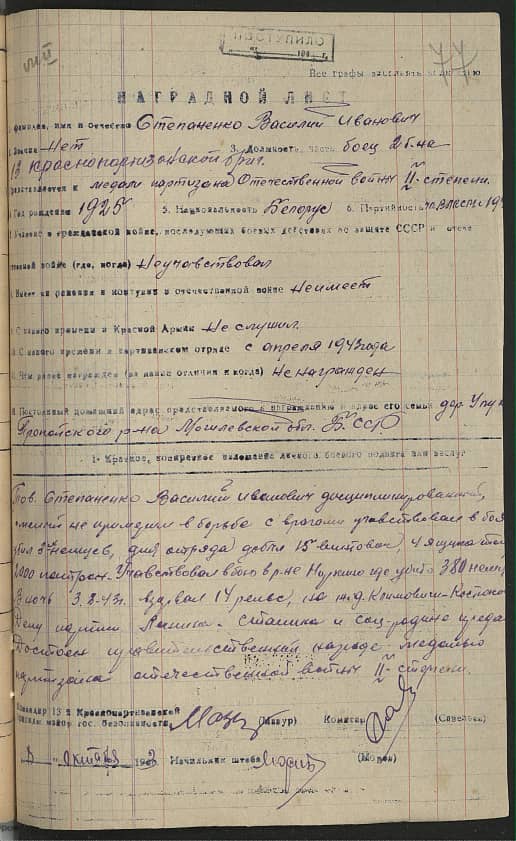 77
Все графы
НАГРАДНОЙ ЛИСТ
фамилия, имя и отчество Степаненко Василий Иванович
Звание Нет 3. Должность, часть боец 2 б-на
13 Краснопартизанской бриг.
Представляется к медали партизана Отечественной войны II степени.
Год рождения 1925 5. Национальность Белорус 6. Партийность
Участие в гражданской войне, последующих боевых действиях по защите СССР и отече
ственной войне (где, когда) Не учавствовал
Имеет ли ранения и контузии в отечественной войне Не имеет
С какого времени в Красной Армии Не служил
С какого времени в партизанском отряде с апреля 1943 года
Чем ранее награжден (за какие отличия и когда) Не награжден
Постоянный домашний адрес представляемого к награждению и адрес его семьи дер.
Пропойского р-на Могилевской обл. БССР
1. Краткое, конкретное изложение личного боевого подвига или заслуг
Тов. Степаненко Василий Иванович дисциплинированный,
в борьбе с врагами учавствовал в боя
убил 5 немцев, для отряда добыл 15 винтовок, 4 ящика
патрон. Учавствовал в бою в р-не где убито 380
В ночь 3.8.43г. взорвал 14 рельс, на ж.д. Климовичи-
Делу партии Ленина-Сталина и соц-родине преда
Достоин правительственной награде-медалью
партизана отечественной войны II-степени.
Командир 13 Краснопартизанской
майор гос. безопасности (Мазур) Комиссар
октября 1943 Начальник штаба